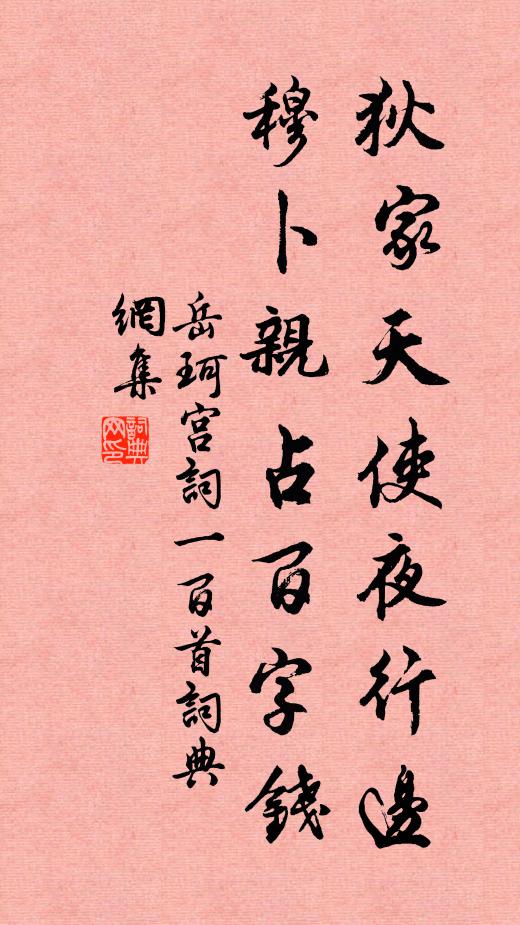 狄家天使夜行邊
穆卜親占百字錢
岳珂宮詞一百首詞典
網集
詞典
网印